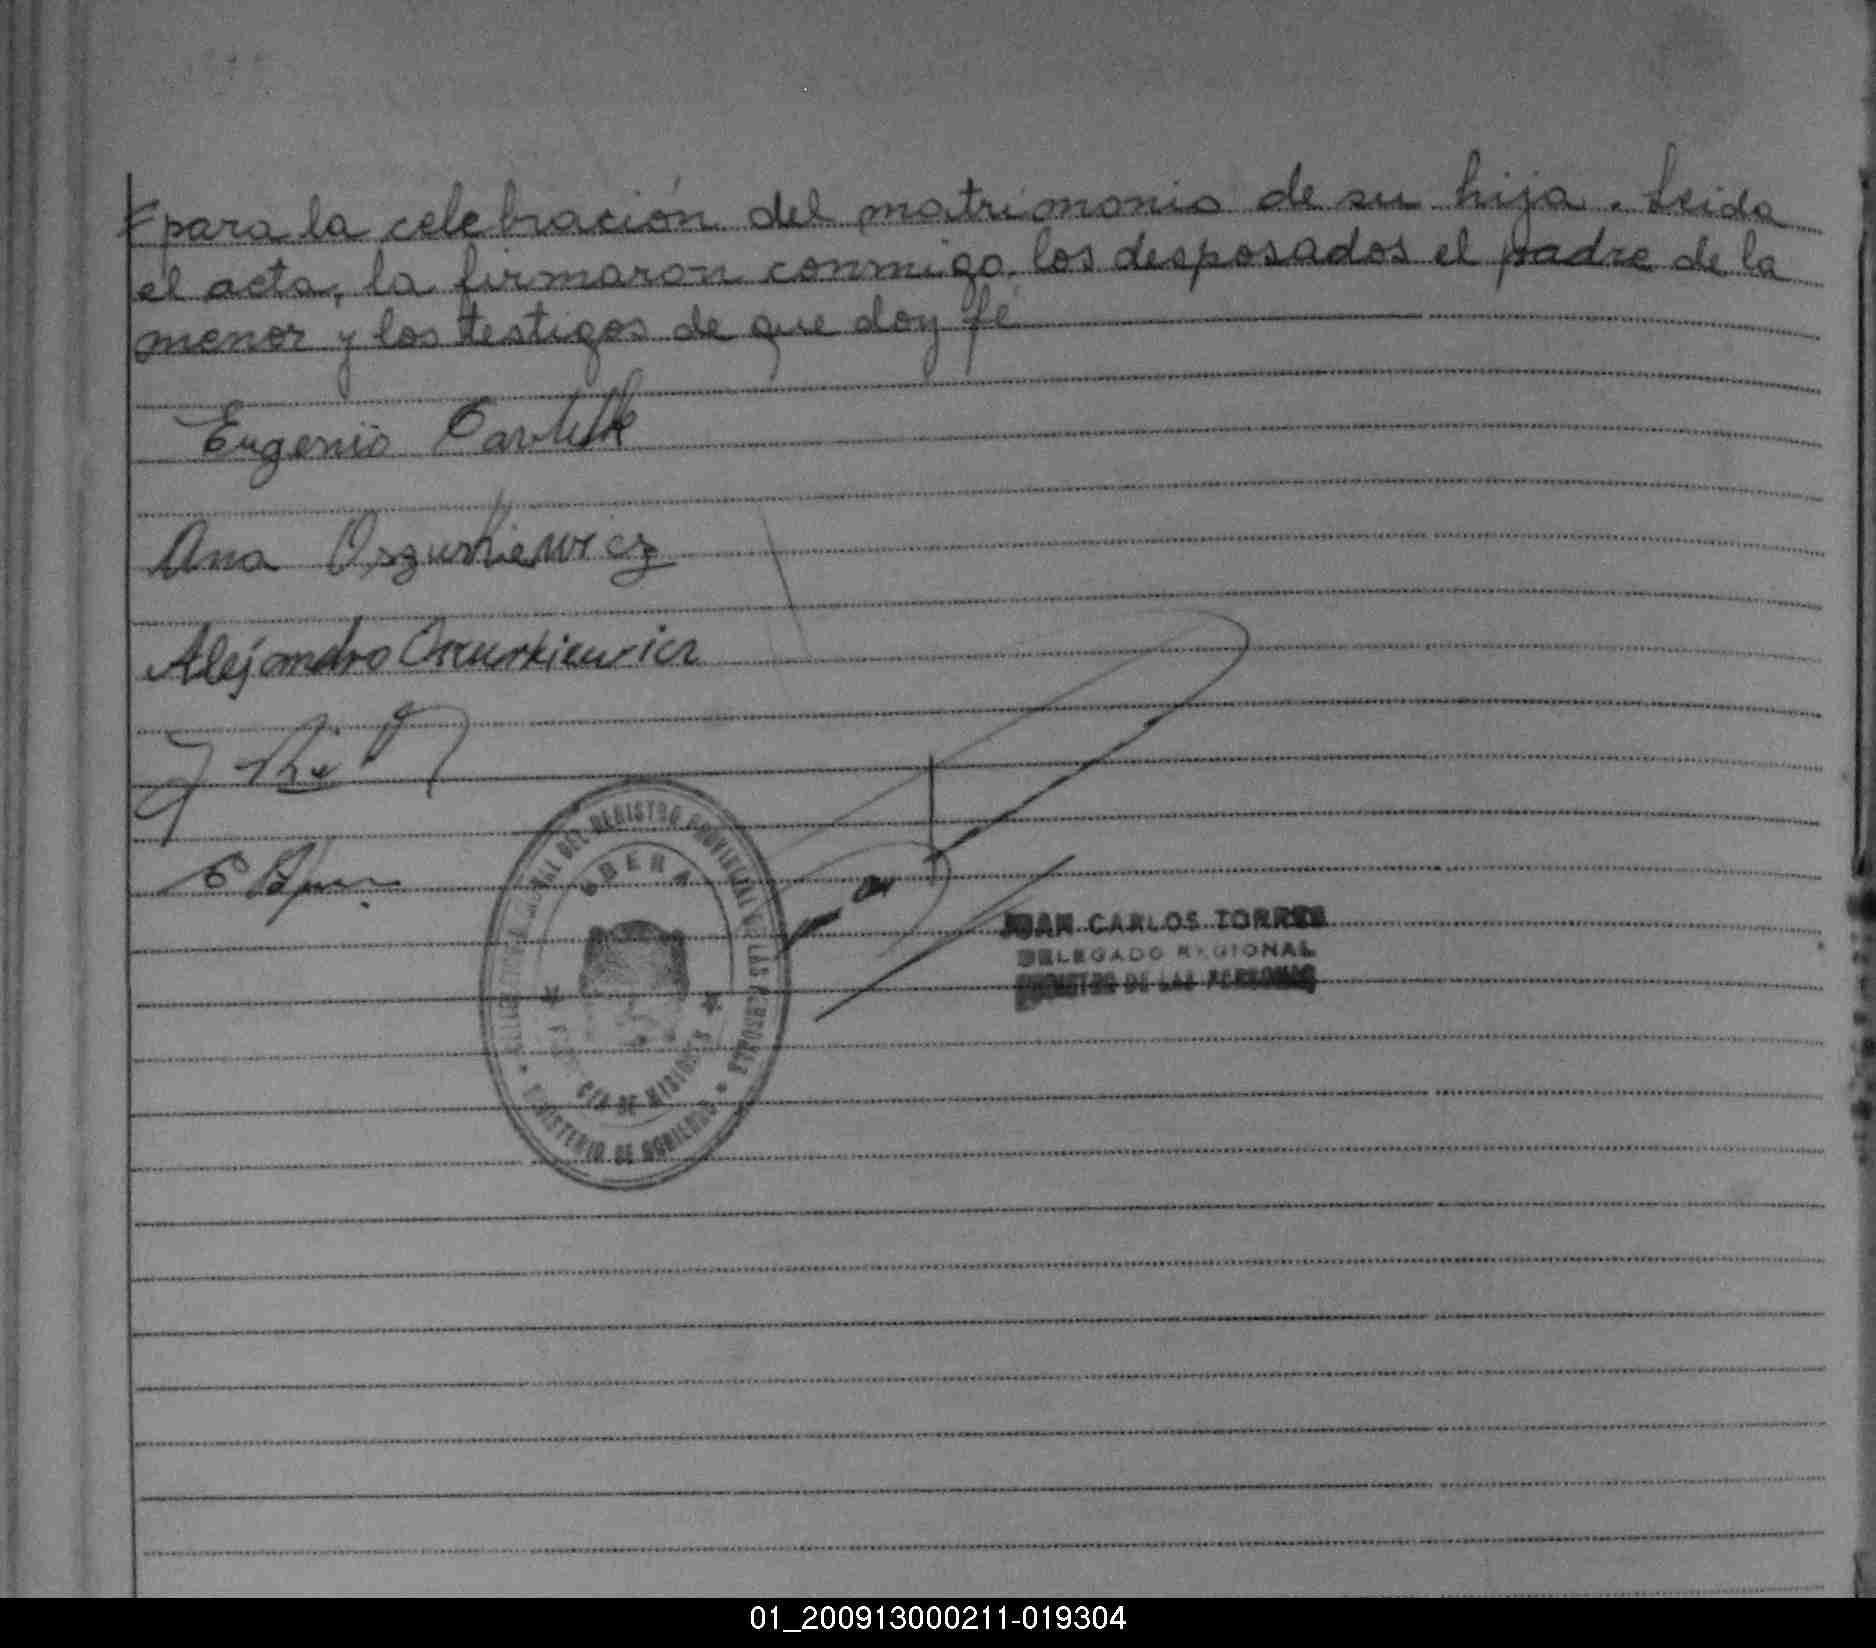 para la celebración del matrimonio de su hija. Leida
el acta, la firmaron conmigo, los desposados el padre de la
menor y los testigos de que doy fé
Eugenio
Ana Oszurkiewicz
Alejandro Oszurkiewicz
DEL REGISTRO PROVINCIAL DE LAS PERSONAS
OBERA
CIA DE MISIONES
MINISTERIO DE GOBIERNO
JUAN CARLOS TORRES
DELEGADO REGIONAL
REGISTRO DE LAS PERSONAS
01_200913000211-019304